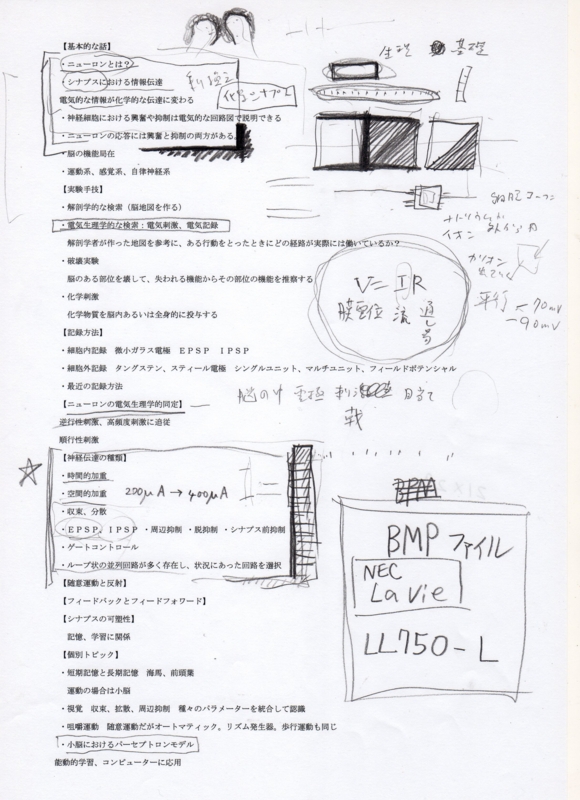 【基本的な話】
・ニューロンとは？
・シナプスにおける情報伝達
電気的な情報が化学的な伝達に変わる
・神経細胞における興奮や抑制は電気的な回路図で説明できる
・ニューロンの応答には興奮と抑制の両方がある。
・脳の機能局在
・運動系、感覚系、自律神経系
【実験手技】
・解剖学的な検索（脳地図を作る）
・電気生理学的な検索：電気刺激、電気記録
解剖学者が作った地図を参考に、ある行動をとったときにどの経路が実際には働いているか？
・破壊実験
脳のある部位を壊して、失われる機能からその部位の機能を推察する
・化学刺激
化学物質を脳内あるいは全身的に投与する
【記録方法】
・細胞内記録　微小ガラス電極　ＥＰＳＰ　ＩＰＳＰ
・細胞外記録　タングステン、スティール電極　シングルユニット、マルチユニット、フィールドポテンシャル
・最近の記録方法
【ニューロンの電気生理学的同定】
逆行性刺激、高頻度刺激に追従
順行性刺激
【神経伝達の種類】
・時間的加重
・空間的加重　200μA→400μA
・収束、分散
・ＥＰＳＰ，ＩＰＳＰ　・周辺抑制　・脱抑制　・シナプス前抑制
・ゲートコントロール
・ループ状の並列回路が多く存在し、状況にあった回路を選択
【随意運動と反射】
【フィードバックとフィードフォワード】
【シナプスの可塑性】
記憶、学習に関係
【個別トピック】
・短期記憶と長期記憶　海馬、前頭葉
運動の場合は小脳
・視覚　収束、拡散、周辺抑制　種々のパラメーターを統合して認識
・咀嚼運動　随意運動だがオートマティック。リズム発生器。歩行運動も同じ
・小脳におけるパーセプトロンモデル
能動的学習、コンピューターに応用
生理
基礎
イオン
V=IR
膜電位　流　通し号
平行
-70mV
-90mV
脳の中　電極
BMPファイル
NEC
La Vie
LL750-L